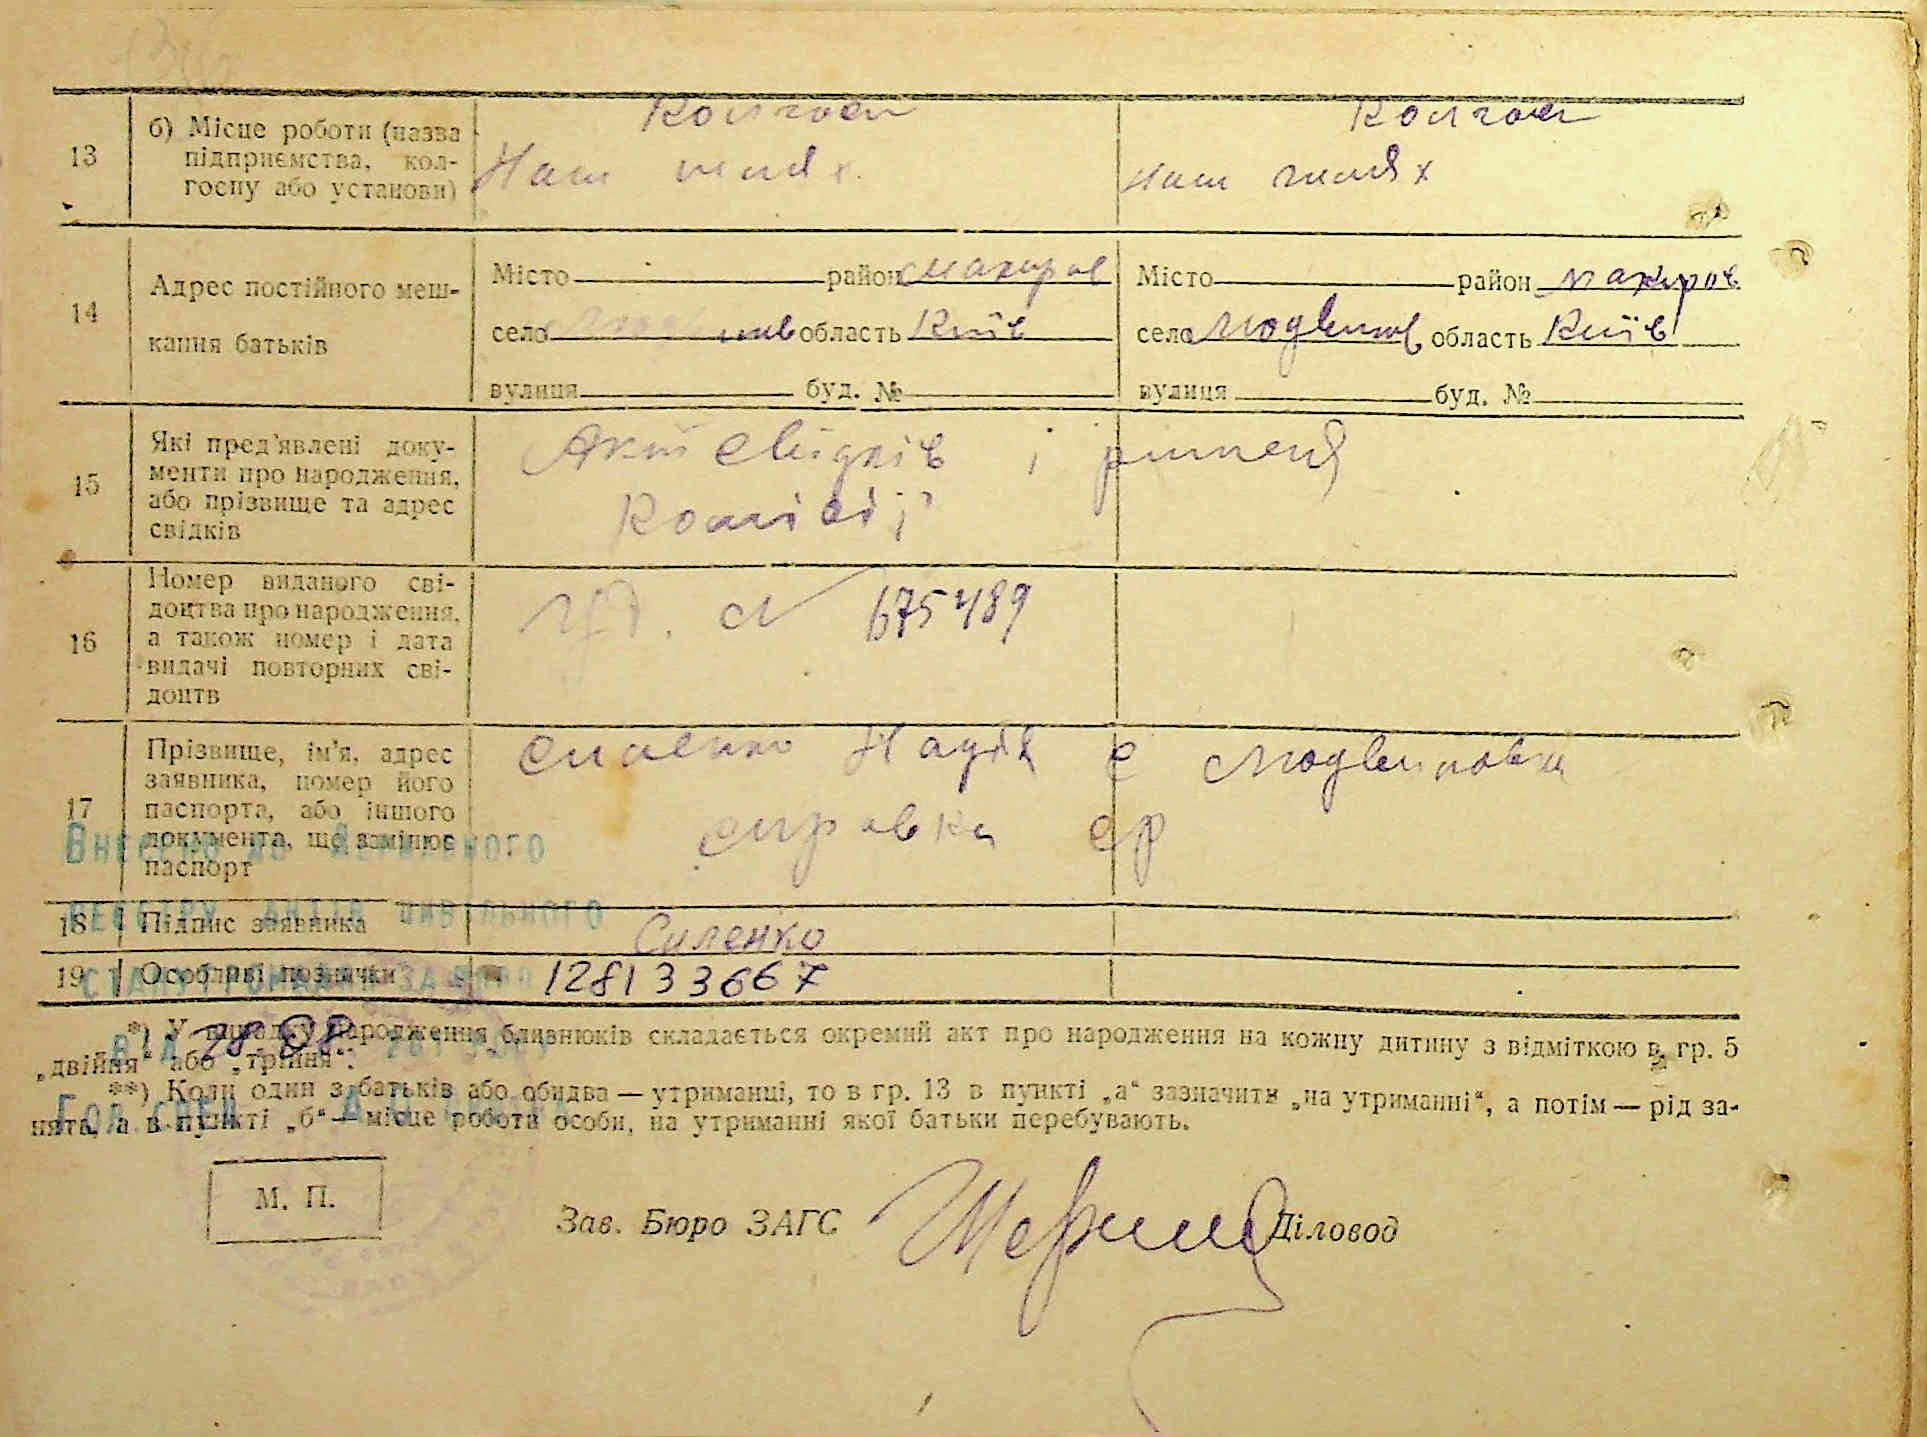 13
б) Місце роботи (назва
підприємства, кол-
госпу або установи)
Колгосп
Наш шлях
Колгосп
Наш шлях
14
Адрес постійного меш-
кання батьків
Місто район Макаров
село область Київ
вулиця буд. №
Місто район Макаров
село Людвинов область Київ
вулиця буд. №
15
Які пред'явлені доку-
менти про народження,
або прізвище та адрес
свідків
Акт свідків і рішення
Комісії
16
Номер виданого сві-
доцтва про народження,
а також номер і дата
видачі повторних сві-
доцтв
N 675489
17
Прізвище, ім'я, адрес
заявника, номер його
паспорта, або іншого
документа, що замінює
паспорт
Силенко Надія с Людвиновка
справка ср
Внесено до Державного
реєстру актів цивільного
18 Підпис заявника
Силенко
19 Особливі позначки
128133667
*) У випадку народження близнюків складається окремий акт про народження на кожну дитину з відміткою в гр. 5
„двійня" або „трійня".
**) Коли один з батьків або обидва — утриманці, то в гр. 13 в пункті „а" зазначити „на утриманні", а потім — рід за-
няття, а в пункті „б" — місце робота особи, на утриманні якої батьки перебувають.
М. П.
Зав. Бюро ЗАГС
Діловод